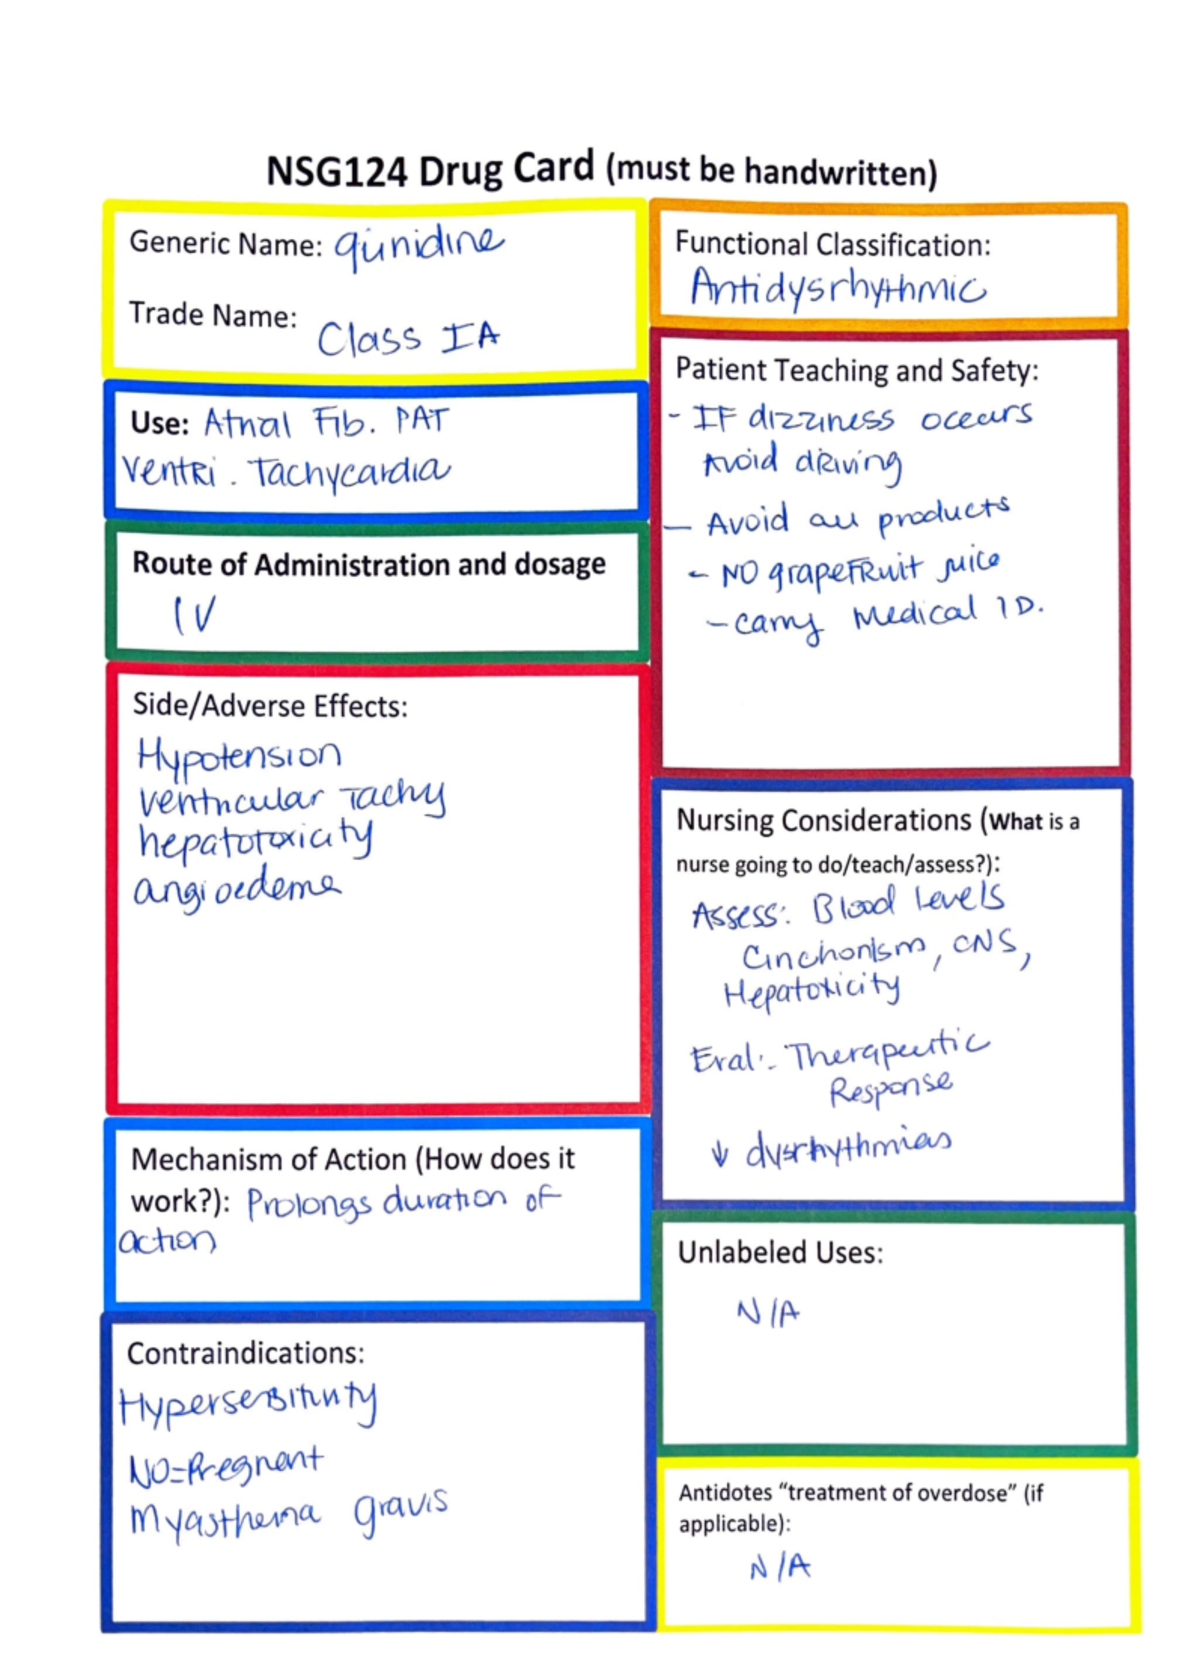 NSG124 Drug Card (must be handwritten)
Generic Name: qunidine
Trade Name: Class IA
Use: Atrial Fib. PAT
Ventri. Tachycardia
Route of Administration and dosage
IV
Side/Adverse Effects:
Hypotension
ventricular Tachy
hepatotoxicity
angioedema
Mechanism of Action (How does it
work?): Prolongs duration of
action
Contraindications:
Hypersensitivity
NO=Pregnant
Myasthenia gravis
Functional Classification:
Antidysrhythmic
Patient Teaching and Safety:
- IF dizziness occurs
Avoid driving
- Avoid all products
- NO grapefruit juice
- carry Medical ID.
Nursing Considerations (What is a
nurse going to do/teach/assess?):
Assess: Blood Levels
Cinchonism, CNS,
Hepatoxicity
Eval:. Therapeutic
Response
↓ dysrhythmias
Unlabeled Uses:
N/A
Antidotes “treatment of overdose” (if
applicable):
N/A